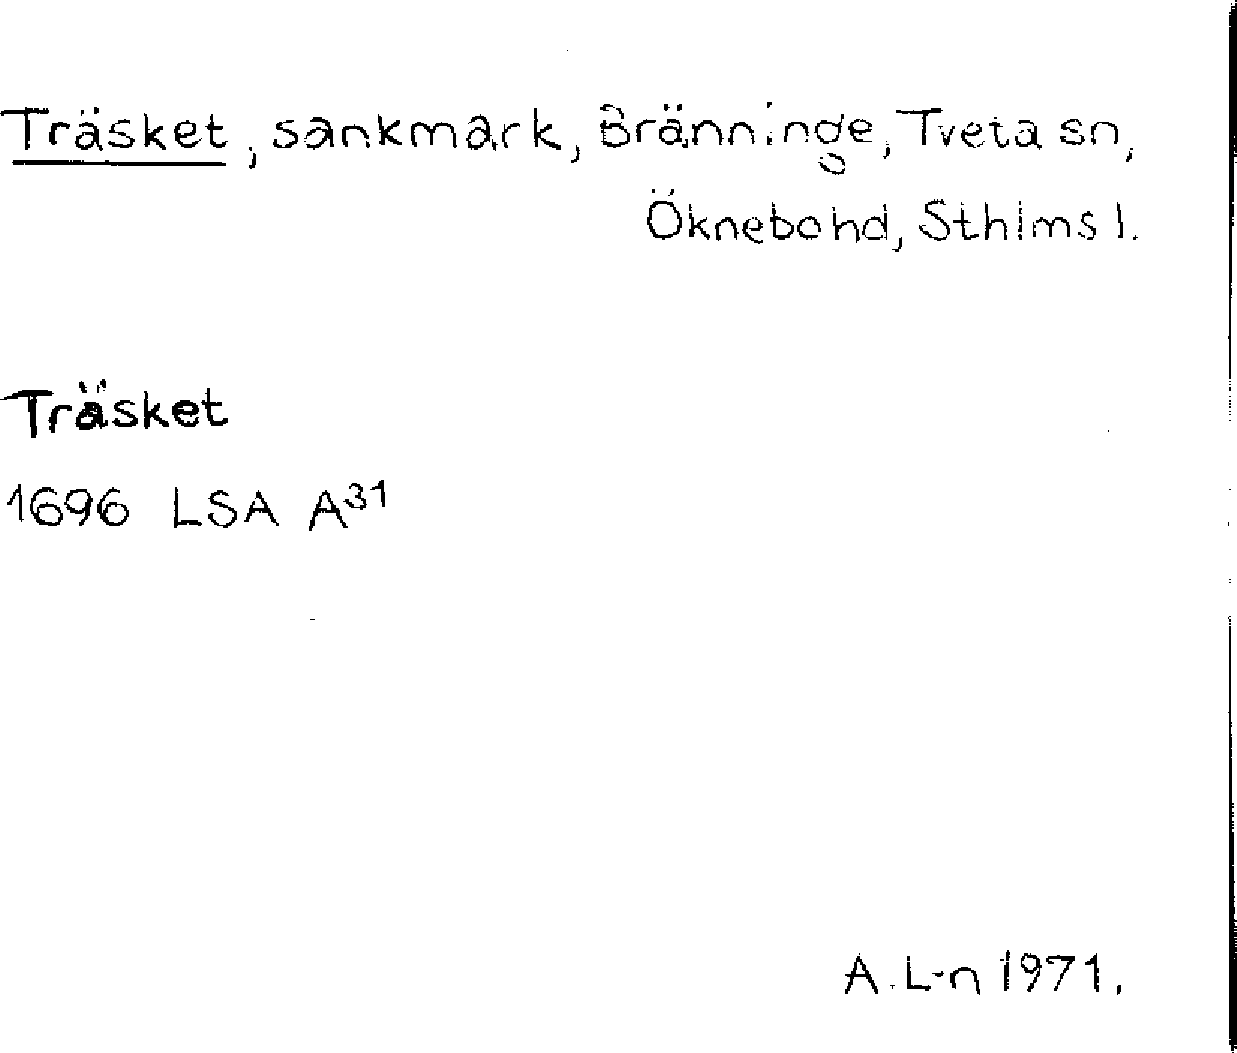 Träsket, sankmark, Bränninge, Tveta sn,
Öknebo hd, Sthlms l.
Träsket
1696 LSA A³¹
A. L-n 1971.